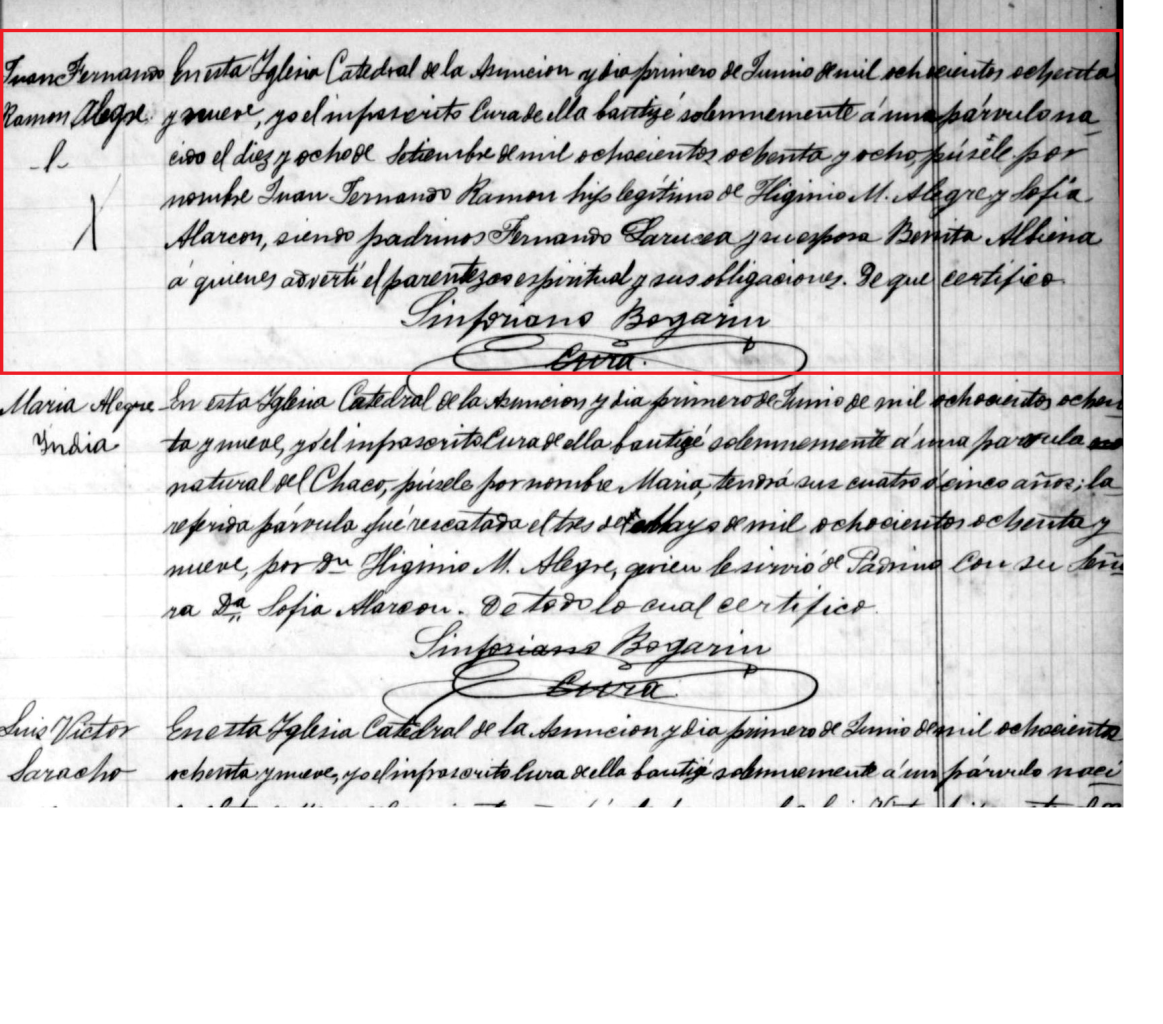 Juan Fernando
Ramon Alegre
l.
En esta Iglesia Catedral de la Asuncion y dia primero de Junio de mil ochocientos ochenta
y nueve, yo el infrascrito Cura de ella bautizé solemnemente á una párvulo na_
cido el diez y ocho de Setiembre de mil ochocientos ochenta y ocho, púsele por
nombre Juan Fernando Ramon hijo legítimo de Higinio M. Alegre y Sofia
Alarcon, siendo padrinos Fernando y su esposa Benita
á quienes advertí el parentezco espiritual y sus obligaciones. De que certifico
Sinforiano Bogarin
Cura.
Maria Alegre
India
En esta Iglesia Catedral de la Asuncion y dia primero de Junio de mil ochocientos ochen
ta y nueve, yo el infrascrito Cura de ella bautizé solemnemente á una parvula
natural del Chaco, púsele por nombre Maria, tendrá sus cuatro ó cinco años; la
referida párvula fué rescatada el tres de Mayo de mil ochocientos ochenta y
nueve, por Dn Higinio M. Alegre, quien le sirvió de Padrino con su Seño
ra Da Sofia Alarcon. De todo lo cual certifico.
Sinforiano Bogarin
Cura
Luis Victor
Saracho
En esta Iglesia Catedral de la Asuncion y dia primero de Junio de mil ochocientos
ochenta y nueve, yo el infrascrito Cura de ella bautizé solemnemente á un párvulo naci